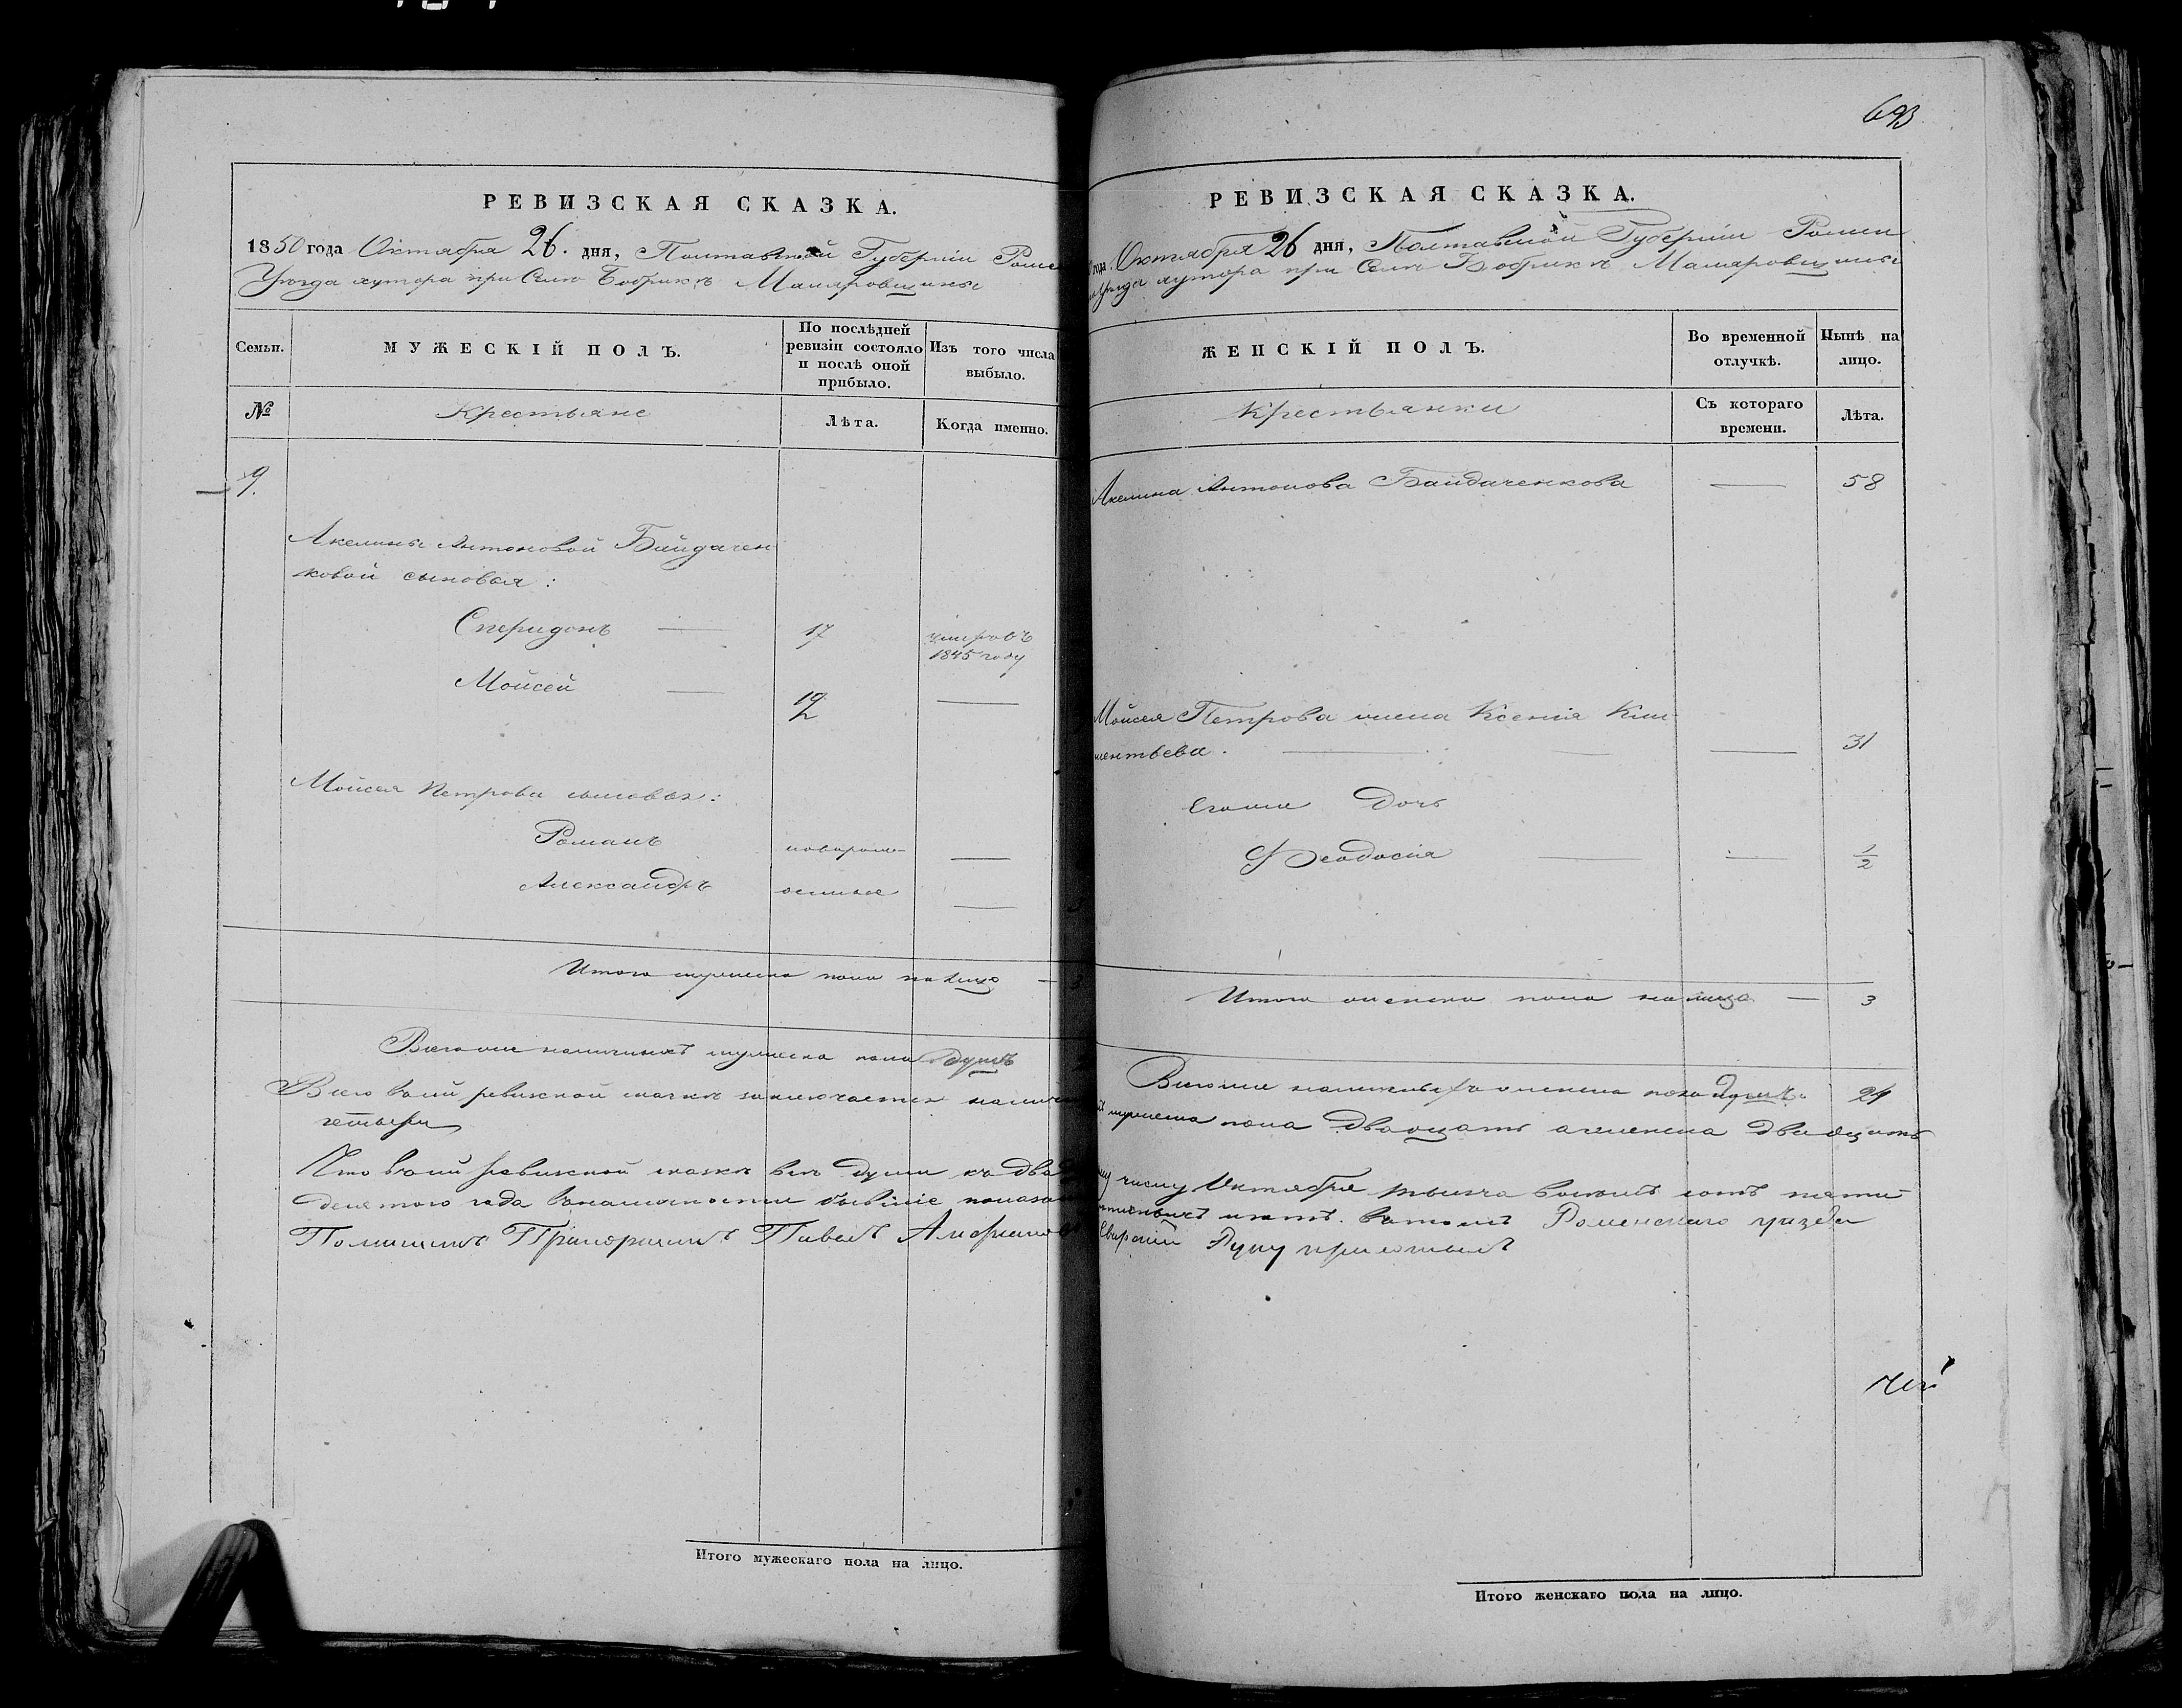 693
РЕВИЗСКАЯ СКАЗКА.
1850 года Октября 26. дня, Полтавской Губерніи Роме
Уѣзда хутора при Селѣ Бобрикѣ
Семьи.
МУЖЕСКІЙ ПОЛЪ.
По послѣдней ревизіи состояло и послѣ оной прибыло.
Изъ того числа выбыло.
№
Крестьяне
Лѣта.
Когда именно.
9.
Акелины Антоновой Байдачен
ковой сыновья:
Сперидонъ — 17 умеръ въ
1845 году
Мойсей — —
Мойсея Петрова сыновья:
Романъ новорож- —
Александръ денные —
Итого мужеска пола на лицо — 3
Всего же наличныхъ мужеска пола душъ
Всего въ сей ревизской сказкѣ заключается налич
четыре
Что въ сей ревизской сказкѣ всѣ души къ два
десятого года въ наличности бывшіе показа
Помѣщикъ Прапорщикъ Павелъ
Итого мужескаго пола на лицо.
РЕВИЗСКАЯ СКАЗКА.
года Октября 26 дня, Полтавской Губерніи Ромен
Уѣзда хутора при Селѣ Бобрикѣ
ЖЕНСКІЙ ПОЛЪ.
Во временной отлучкѣ.
Нынѣ на лицо.
Крестьянки
Съ котораго времени.
Лѣта.
Акелина Антонова Байдаченкова — 58
Мойсея Петрова жена Ксенія Кли
ментьева. — — — 31
Егоже Дочь
Феодосія — — 1/2
Итого женска пола на лицо — 3
Всего же наличныхъ женска пола душъ. 24
мужеска пола двадцать а женска двадцать
числу Октября тысяча восемь сотъ пяти
Роменскаго уѣзда
Руку приложилъ
Итого женскаго пола на лицо.